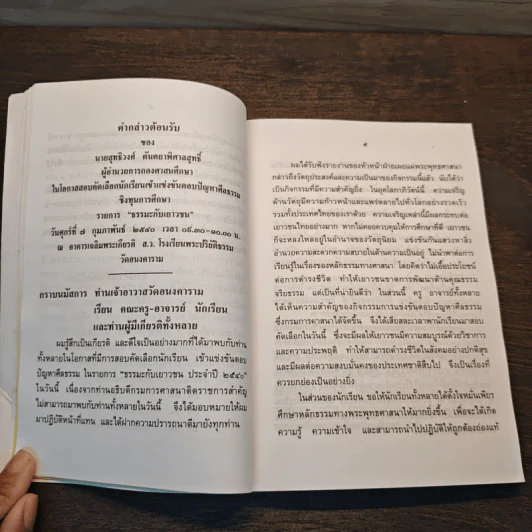 คำกล่าวต้อนรับ
ของ
นายสุทธิวงศ์ ตันตยาพิศาลสุทธิ์
ผู้อำนวยการกองศาสนศึกษา
ในโอกาสสอบคัดเลือกนักเรียนเข้าแข่งขันตอบปัญหาศีลธรรม
ชิงทุนการศึกษา
รายการ "ธรรมะกับเยาวชน"
วันศุกร์ที่ ๗ กุมภาพันธ์ ๒๕๔๐ เวลา ๐๙.๓๐-๑๐.๐๐ น.
ณ อาคารเฉลิมพระเกียรติ ส.ว. โรงเรียนพระปริยัติธรรม
วัดอนงคาราม
กราบนมัสการ ท่านเจ้าอาวาสวัดอนงคาราม
เรียน คณะครู-อาจารย์ นักเรียน
และท่านผู้มีเกียรติทั้งหลาย
ผมรู้สึกเป็นเกียรติ และดีใจเป็นอย่างมากที่ได้มาพบกับท่าน
ทั้งหลายในโอกาสที่มีการสอบคัดเลือกนักเรียน เข้าแข่งขันตอบ
ปัญหาศีลธรรม ในรายการ "ธรรมะกับเยาวชน ประจำปี ๒๕๔๐"
ในวันนี้ เนื่องจากท่านอธิบดีกรมการศาสนาติดราชการสำคัญ
ไม่สามารถมาพบกับท่านทั้งหลายในวันนี้ จึงได้มอบหมายให้ผม
มาปฏิบัติหน้าที่แทน และได้ฝากความปรารถนาดีมายังทุกท่าน
ผมได้รับฟังรายงานของหัวหน้าฝ่ายเผยแผ่พระพุทธศาสนา
กล่าวถึงวัตถุประสงค์และความเป็นมาของกิจกรรมนี้แล้ว นับได้ว่า
เป็นกิจกรรมที่มีความสำคัญยิ่ง ในยุคโลกาภิวัตน์นี้ ความเจริญ
ด้านวัตถุมีความก้าวหน้าและแพร่หลายไปทั่วโลกอย่างรวดเร็ว
รวมทั้งประเทศไทยของเราด้วย ความเจริญเหล่านี้มีผลกระทบต่อ
เยาวชนไทยอย่างมาก หากไม่คอยควบคุมให้การศึกษาที่ดี เยาวชน
ก็จะหลงใหลอยู่ในอำนาจของวัตถุนิยม แข่งขันกันแสวงหาสิ่ง
อำนวยความสะดวกความสบายในด้านความเป็นอยู่ ไม่นำพาต่อการ
เรียนรู้ในเรื่องของหลักธรรมทางศาสนา โดยคิดว่าไม่เอื้อประโยชน์
ต่อการดำรงชีวิต ทำให้เยาวชนขาดการพัฒนาด้านคุณธรรม
จริยธรรม แต่เป็นที่น่ายินดีว่า ในส่วนนี้ ครู อาจารย์ทั้งหลาย
ได้เห็นความสำคัญของกิจกรรมการแข่งขันตอบปัญหาศีลธรรม
ซึ่งกรมการศาสนาได้จัดขึ้น จึงได้เสียสละเวลาพานักเรียนมาสอบ
คัดเลือกในวันนี้ ซึ่งจะมีผลให้เยาวชนมีความสมบูรณ์ด้วยวิชาการ
และความประพฤติ ทำให้สามารถดำรงชีวิตในสังคมอย่างปกติสุข
และมีผลต่อความสงบมั่นคงของประเทศชาติสืบไป จึงเป็นเรื่องที่
ควรยกย่องเป็นอย่างยิ่ง
ในส่วนของนักเรียน ขอให้นักเรียนทั้งหลายได้ตั้งใจหมั่นเพียร
ศึกษาหลักธรรมทางพระพุทธศาสนาให้มากยิ่งขึ้น เพื่อจะได้เกิด
ความรู้ ความเข้าใจ และสามารถนำไปปฏิบัติให้ถูกต้องถ่องแท้